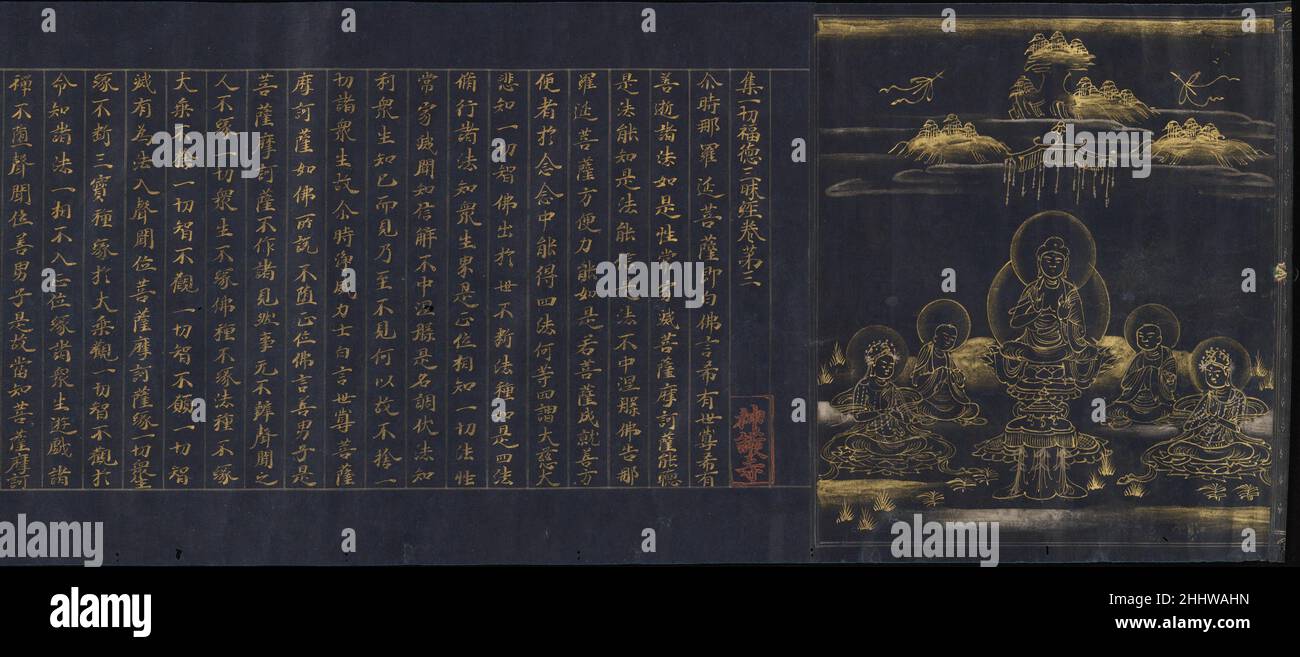 集一切福德三昧經卷第三
神護寺
尒時那羅延菩薩即白佛言希有世尊希有
善逝諸法如是性常寂滅菩薩摩訶薩能憶
是法能知是法能是法不中涅槃佛告那
羅延菩薩方便力能如是若菩薩成就善方
便者於念念中能得四法何等四謂大慈大
悲知一切智佛出於世不斷法種如是四法
脩行諸法知衆生界是正位相知一切法性
常寂滅聞知信解不中涅槃是名調伏法知
利衆生知已而見乃至不見何以故不捨一
切諸衆生故尒時淨威力士白言世尊菩薩
摩訶薩如佛所說不墮正位佛言善男子是
菩薩摩訶薩不作諸見然事无不辯聲聞之
人不緣一切衆生不緣佛種不緣法種不緣
大乘不一切智不觀一切智不願一切智
滅有為法入聲聞位菩薩摩訶薩緣一切衆生
緣不斷三寶種緣於大乘觀一切智不觀於
令知諸法一相不入正位緣諸衆生遊戲諸
禪不墮聲聞位善男子是故當知菩薩摩訶
alamy
Image ID: 2HHWAHN
www.alamy.com